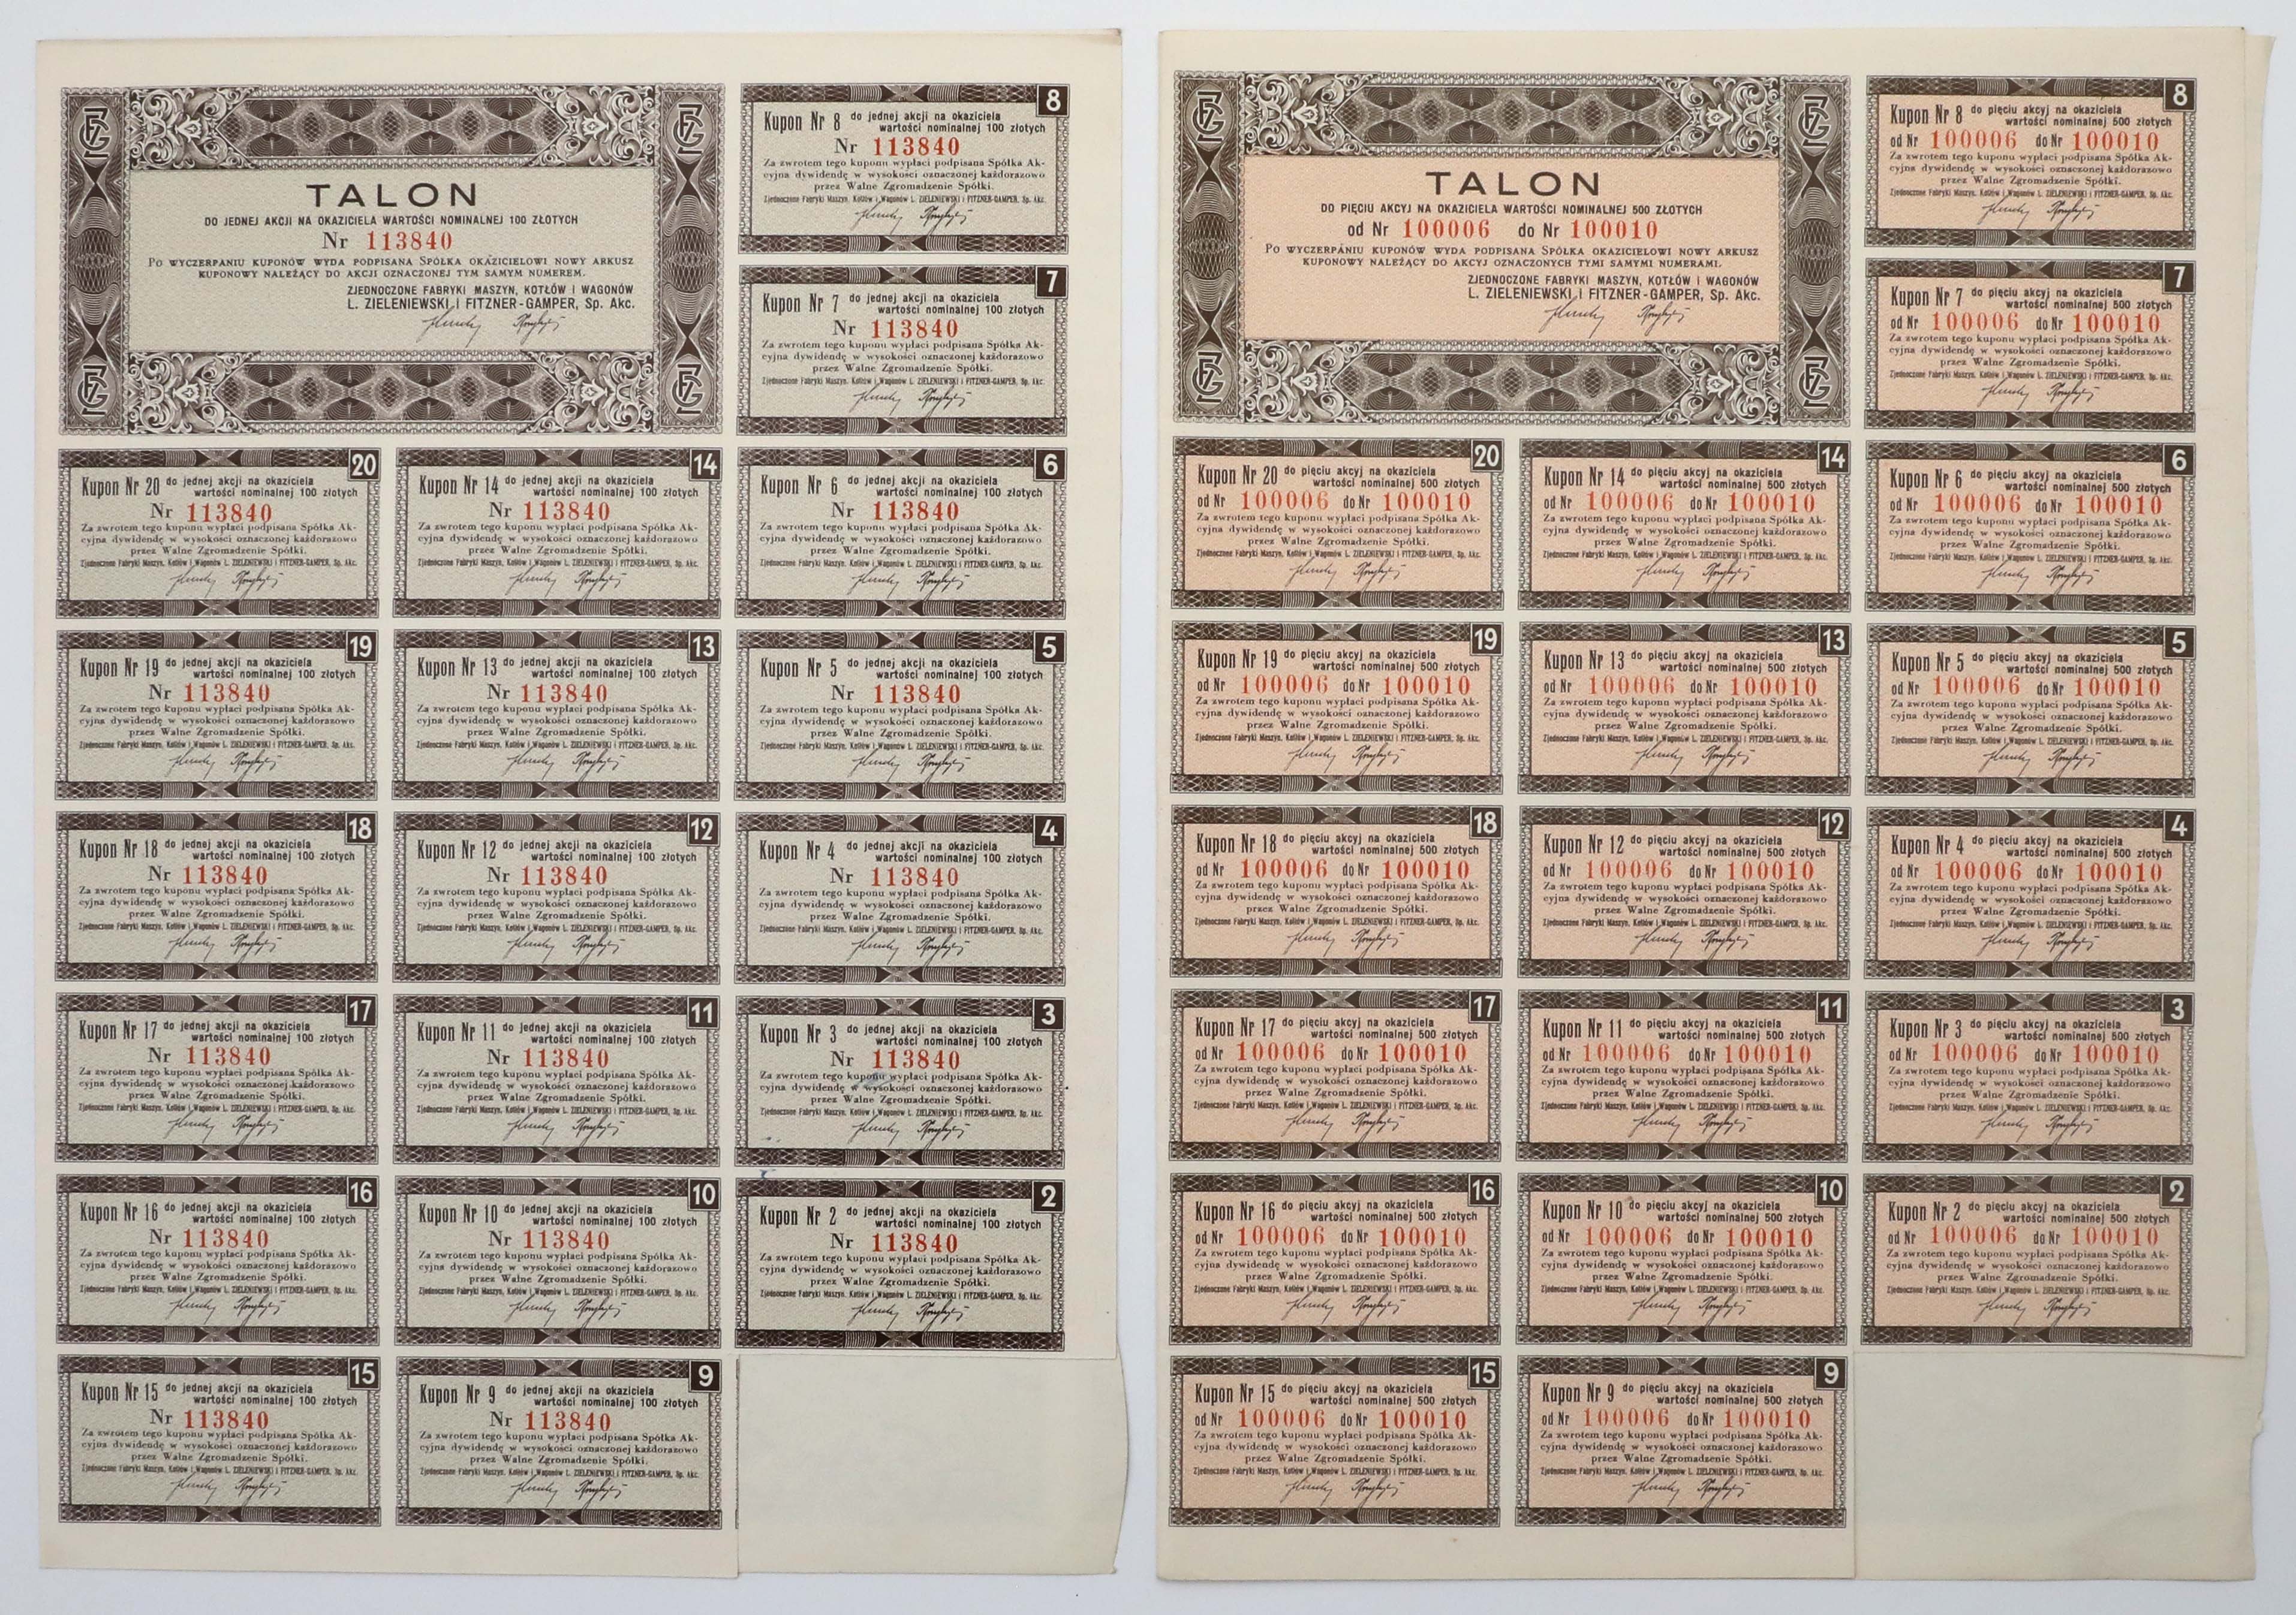 TALON
DO JEDNEJ AKCJI NA OKAZICIELA WARTOŚCI NOMINALNEJ 100 ZŁOTYCH
Nr 113840
PO WYCZERPANIU KUPONÓW WYDA PODPISANA SPÓŁKA OKAZICIELOWI NOWY ARKUSZ
KUPONOWY NALEŻĄCY DO AKCJI OZNACZONEJ TYM SAMYM NUMEREM.
ZJEDNOCZONE FABRYKI MASZYN, KOTŁÓW I WAGONÓW
L. ZIELENIEWSKI I FITZNER-GAMPER, Sp. Akc.
8
Kupon Nr 8 do jednej akcji na okaziciela
wartości nominalnej 100 złotych
Nr 113840
Za zwrotem tego kuponu wypłaci podpisana Spółka Ak-
cyjna dywidendę w wysokości oznaczonej każdorazowo
przez Walne Zgromadzenie Spółki.
Zjednoczone Fabryki Maszyn, Kotłów i Wagonów L. ZIELENIEWSKI i FITZNER-GAMPER, Sp. Akc.
7
Kupon Nr 7 do jednej akcji na okaziciela
wartości nominalnej 100 złotych
Nr 113840
Za zwrotem tego kuponu wypłaci podpisana Spółka Ak-
cyjna dywidendę w wysokości oznaczonej każdorazowo
przez Walne Zgromadzenie Spółki.
Zjednoczone Fabryki Maszyn, Kotłów i Wagonów L. ZIELENIEWSKI i FITZNER-GAMPER, Sp. Akc.
20
Kupon Nr 20 do jednej akcji na okaziciela
wartości nominalnej 100 złotych
Nr 113840
Za zwrotem tego kuponu wypłaci podpisana Spółka Ak-
cyjna dywidendę w wysokości oznaczonej każdorazowo
przez Walne Zgromadzenie Spółki.
Zjednoczone Fabryki Maszyn, Kotłów i Wagonów L. ZIELENIEWSKI i FITZNER-GAMPER, Sp. Akc.
14
Kupon Nr 14 do jednej akcji na okaziciela
wartości nominalnej 100 złotych
Nr 113840
Za zwrotem tego kuponu wypłaci podpisana Spółka Ak-
cyjna dywidendę w wysokości oznaczonej każdorazowo
przez Walne Zgromadzenie Spółki.
Zjednoczone Fabryki Maszyn, Kotłów i Wagonów L. ZIELENIEWSKI i FITZNER-GAMPER, Sp. Akc.
6
Kupon Nr 6 do jednej akcji na okaziciela
wartości nominalnej 100 złotych
Nr 113840
Za zwrotem tego kuponu wypłaci podpisana Spółka Ak-
cyjna dywidendę w wysokości oznaczonej każdorazowo
przez Walne Zgromadzenie Spółki.
Zjednoczone Fabryki Maszyn, Kotłów i Wagonów L. ZIELENIEWSKI i FITZNER-GAMPER, Sp. Akc.
19
Kupon Nr 19 do jednej akcji na okaziciela
wartości nominalnej 100 złotych
Nr 113840
Za zwrotem tego kuponu wypłaci podpisana Spółka Ak-
cyjna dywidendę w wysokości oznaczonej każdorazowo
przez Walne Zgromadzenie Spółki.
Zjednoczone Fabryki Maszyn, Kotłów i Wagonów L. ZIELENIEWSKI i FITZNER-GAMPER, Sp. Akc.
13
Kupon Nr 13 do jednej akcji na okaziciela
wartości nominalnej 100 złotych
Nr 113840
Za zwrotem tego kuponu wypłaci podpisana Spółka Ak-
cyjna dywidendę w wysokości oznaczonej każdorazowo
przez Walne Zgromadzenie Spółki.
Zjednoczone Fabryki Maszyn, Kotłów i Wagonów L. ZIELENIEWSKI i FITZNER-GAMPER, Sp. Akc.
5
Kupon Nr 5 do jednej akcji na okaziciela
wartości nominalnej 100 złotych
Nr 113840
Za zwrotem tego kuponu wypłaci podpisana Spółka Ak-
cyjna dywidendę w wysokości oznaczonej każdorazowo
przez Walne Zgromadzenie Spółki.
Zjednoczone Fabryki Maszyn, Kotłów i Wagonów L. ZIELENIEWSKI i FITZNER-GAMPER, Sp. Akc.
18
Kupon Nr 18 do jednej akcji na okaziciela
wartości nominalnej 100 złotych
Nr 113840
Za zwrotem tego kuponu wypłaci podpisana Spółka Ak-
cyjna dywidendę w wysokości oznaczonej każdorazowo
przez Walne Zgromadzenie Spółki.
Zjednoczone Fabryki Maszyn, Kotłów i Wagonów L. ZIELENIEWSKI i FITZNER-GAMPER, Sp. Akc.
12
Kupon Nr 12 do jednej akcji na okaziciela
wartości nominalnej 100 złotych
Nr 113840
Za zwrotem tego kuponu wypłaci podpisana Spółka Ak-
cyjna dywidendę w wysokości oznaczonej każdorazowo
przez Walne Zgromadzenie Spółki.
Zjednoczone Fabryki Maszyn, Kotłów i Wagonów L. ZIELENIEWSKI i FITZNER-GAMPER, Sp. Akc.
4
Kupon Nr 4 do jednej akcji na okaziciela
wartości nominalnej 100 złotych
Nr 113840
Za zwrotem tego kuponu wypłaci podpisana Spółka Ak-
cyjna dywidendę w wysokości oznaczonej każdorazowo
przez Walne Zgromadzenie Spółki.
Zjednoczone Fabryki Maszyn, Kotłów i Wagonów L. ZIELENIEWSKI i FITZNER-GAMPER, Sp. Akc.
17
Kupon Nr 17 do jednej akcji na okaziciela
wartości nominalnej 100 złotych
Nr 113840
Za zwrotem tego kuponu wypłaci podpisana Spółka Ak-
cyjna dywidendę w wysokości oznaczonej każdorazowo
przez Walne Zgromadzenie Spółki.
Zjednoczone Fabryki Maszyn, Kotłów i Wagonów L. ZIELENIEWSKI i FITZNER-GAMPER, Sp. Akc.
11
Kupon Nr 11 do jednej akcji na okaziciela
wartości nominalnej 100 złotych
Nr 113840
Za zwrotem tego kuponu wypłaci podpisana Spółka Ak-
cyjna dywidendę w wysokości oznaczonej każdorazowo
przez Walne Zgromadzenie Spółki.
Zjednoczone Fabryki Maszyn, Kotłów i Wagonów L. ZIELENIEWSKI i FITZNER-GAMPER, Sp. Akc.
3
Kupon Nr 3 do jednej akcji na okaziciela
wartości nominalnej 100 złotych
Nr 113840
Za zwrotem tego kuponu wypłaci podpisana Spółka Ak-
cyjna dywidendę w wysokości oznaczonej każdorazowo
przez Walne Zgromadzenie Spółki.
Zjednoczone Fabryki Maszyn, Kotłów i Wagonów L. ZIELENIEWSKI i FITZNER-GAMPER, Sp. Akc.
16
Kupon Nr 16 do jednej akcji na okaziciela
wartości nominalnej 100 złotych
Nr 113840
Za zwrotem tego kuponu wypłaci podpisana Spółka Ak-
cyjna dywidendę w wysokości oznaczonej każdorazowo
przez Walne Zgromadzenie Spółki.
Zjednoczone Fabryki Maszyn, Kotłów i Wagonów L. ZIELENIEWSKI i FITZNER-GAMPER, Sp. Akc.
10
Kupon Nr 10 do jednej akcji na okaziciela
wartości nominalnej 100 złotych
Nr 113840
Za zwrotem tego kuponu wypłaci podpisana Spółka Ak-
cyjna dywidendę w wysokości oznaczonej każdorazowo
przez Walne Zgromadzenie Spółki.
Zjednoczone Fabryki Maszyn, Kotłów i Wagonów L. ZIELENIEWSKI i FITZNER-GAMPER, Sp. Akc.
2
Kupon Nr 2 do jednej akcji na okaziciela
wartości nominalnej 100 złotych
Nr 113840
Za zwrotem tego kuponu wypłaci podpisana Spółka Ak-
cyjna dywidendę w wysokości oznaczonej każdorazowo
przez Walne Zgromadzenie Spółki.
Zjednoczone Fabryki Maszyn, Kotłów i Wagonów L. ZIELENIEWSKI i FITZNER-GAMPER, Sp. Akc.
15
Kupon Nr 15 do jednej akcji na okaziciela
wartości nominalnej 100 złotych
Nr 113840
Za zwrotem tego kuponu wypłaci podpisana Spółka Ak-
cyjna dywidendę w wysokości oznaczonej każdorazowo
przez Walne Zgromadzenie Spółki.
Zjednoczone Fabryki Maszyn, Kotłów i Wagonów L. ZIELENIEWSKI i FITZNER-GAMPER, Sp. Akc.
9
Kupon Nr 9 do jednej akcji na okaziciela
wartości nominalnej 100 złotych
Nr 113840
Za zwrotem tego kuponu wypłaci podpisana Spółka Ak-
cyjna dywidendę w wysokości oznaczonej każdorazowo
przez Walne Zgromadzenie Spółki.
Zjednoczone Fabryki Maszyn, Kotłów i Wagonów L. ZIELENIEWSKI i FITZNER-GAMPER, Sp. Akc.
TALON
DO PIĘCIU AKCYJ NA OKAZICIELA WARTOŚCI NOMINALNEJ 500 ZŁOTYCH
od Nr 100006 do Nr 100010
PO WYCZERPANIU KUPONÓW WYDA PODPISANA SPÓŁKA OKAZICIELOWI NOWY ARKUSZ
KUPONOWY NALEŻĄCY DO AKCYJ OZNACZONYCH TYMI SAMYMI NUMERAMI.
ZJEDNOCZONE FABRYKI MASZYN, KOTŁÓW I WAGONÓW
L. ZIELENIEWSKI I FITZNER-GAMPER, Sp. Akc.
8
Kupon Nr 8 do pięciu akcyj na okaziciela
wartości nominalnej 500 złotych
od Nr 100006 do Nr 100010
Za zwrotem tego kuponu wypłaci podpisana Spółka Ak-
cyjna dywidendę w wysokości oznaczonej każdorazowo
przez Walne Zgromadzenie Spółki.
Zjednoczone Fabryki Maszyn, Kotłów i Wagonów L. ZIELENIEWSKI i FITZNER-GAMPER, Sp. Akc.
7
Kupon Nr 7 do pięciu akcyj na okaziciela
wartości nominalnej 500 złotych
od Nr 100006 do Nr 100010
Za zwrotem tego kuponu wypłaci podpisana Spółka Ak-
cyjna dywidendę w wysokości oznaczonej każdorazowo
przez Walne Zgromadzenie Spółki.
Zjednoczone Fabryki Maszyn, Kotłów i Wagonów L. ZIELENIEWSKI i FITZNER-GAMPER, Sp. Akc.
20
Kupon Nr 20 do pięciu akcyj na okaziciela
wartości nominalnej 500 złotych
od Nr 100006 do Nr 100010
Za zwrotem tego kuponu wypłaci podpisana Spółka Ak-
cyjna dywidendę w wysokości oznaczonej każdorazowo
przez Walne Zgromadzenie Spółki.
Zjednoczone Fabryki Maszyn, Kotłów i Wagonów L. ZIELENIEWSKI i FITZNER-GAMPER, Sp. Akc.
14
Kupon Nr 14 do pięciu akcyj na okaziciela
wartości nominalnej 500 złotych
od Nr 100006 do Nr 100010
Za zwrotem tego kuponu wypłaci podpisana Spółka Ak-
cyjna dywidendę w wysokości oznaczonej każdorazowo
przez Walne Zgromadzenie Spółki.
Zjednoczone Fabryki Maszyn, Kotłów i Wagonów L. ZIELENIEWSKI i FITZNER-GAMPER, Sp. Akc.
6
Kupon Nr 6 do pięciu akcyj na okaziciela
wartości nominalnej 500 złotych
od Nr 100006 do Nr 100010
Za zwrotem tego kuponu wypłaci podpisana Spółka Ak-
cyjna dywidendę w wysokości oznaczonej każdorazowo
przez Walne Zgromadzenie Spółki.
Zjednoczone Fabryki Maszyn, Kotłów i Wagonów L. ZIELENIEWSKI i FITZNER-GAMPER, Sp. Akc.
19
Kupon Nr 19 do pięciu akcyj na okaziciela
wartości nominalnej 500 złotych
od Nr 100006 do Nr 100010
Za zwrotem tego kuponu wypłaci podpisana Spółka Ak-
cyjna dywidendę w wysokości oznaczonej każdorazowo
przez Walne Zgromadzenie Spółki.
Zjednoczone Fabryki Maszyn, Kotłów i Wagonów L. ZIELENIEWSKI i FITZNER-GAMPER, Sp. Akc.
13
Kupon Nr 13 do pięciu akcyj na okaziciela
wartości nominalnej 500 złotych
od Nr 100006 do Nr 100010
Za zwrotem tego kuponu wypłaci podpisana Spółka Ak-
cyjna dywidendę w wysokości oznaczonej każdorazowo
przez Walne Zgromadzenie Spółki.
Zjednoczone Fabryki Maszyn, Kotłów i Wagonów L. ZIELENIEWSKI i FITZNER-GAMPER, Sp. Akc.
5
Kupon Nr 5 do pięciu akcyj na okaziciela
wartości nominalnej 500 złotych
od Nr 100006 do Nr 100010
Za zwrotem tego kuponu wypłaci podpisana Spółka Ak-
cyjna dywidendę w wysokości oznaczonej każdorazowo
przez Walne Zgromadzenie Spółki.
Zjednoczone Fabryki Maszyn, Kotłów i Wagonów L. ZIELENIEWSKI i FITZNER-GAMPER, Sp. Akc.
18
Kupon Nr 18 do pięciu akcyj na okaziciela
wartości nominalnej 500 złotych
od Nr 100006 do Nr 100010
Za zwrotem tego kuponu wypłaci podpisana Spółka Ak-
cyjna dywidendę w wysokości oznaczonej każdorazowo
przez Walne Zgromadzenie Spółki.
Zjednoczone Fabryki Maszyn, Kotłów i Wagonów L. ZIELENIEWSKI i FITZNER-GAMPER, Sp. Akc.
12
Kupon Nr 12 do pięciu akcyj na okaziciela
wartości nominalnej 500 złotych
od Nr 100006 do Nr 100010
Za zwrotem tego kuponu wypłaci podpisana Spółka Ak-
cyjna dywidendę w wysokości oznaczonej każdorazowo
przez Walne Zgromadzenie Spółki.
Zjednoczone Fabryki Maszyn, Kotłów i Wagonów L. ZIELENIEWSKI i FITZNER-GAMPER, Sp. Akc.
4
Kupon Nr 4 do pięciu akcyj na okaziciela
wartości nominalnej 500 złotych
od Nr 100006 do Nr 100010
Za zwrotem tego kuponu wypłaci podpisana Spółka Ak-
cyjna dywidendę w wysokości oznaczonej każdorazowo
przez Walne Zgromadzenie Spółki.
Zjednoczone Fabryki Maszyn, Kotłów i Wagonów L. ZIELENIEWSKI i FITZNER-GAMPER, Sp. Akc.
17
Kupon Nr 17 do pięciu akcyj na okaziciela
wartości nominalnej 500 złotych
od Nr 100006 do Nr 100010
Za zwrotem tego kuponu wypłaci podpisana Spółka Ak-
cyjna dywidendę w wysokości oznaczonej każdorazowo
przez Walne Zgromadzenie Spółki.
Zjednoczone Fabryki Maszyn, Kotłów i Wagonów L. ZIELENIEWSKI i FITZNER-GAMPER, Sp. Akc.
11
Kupon Nr 11 do pięciu akcyj na okaziciela
wartości nominalnej 500 złotych
od Nr 100006 do Nr 100010
Za zwrotem tego kuponu wypłaci podpisana Spółka Ak-
cyjna dywidendę w wysokości oznaczonej każdorazowo
przez Walne Zgromadzenie Spółki.
Zjednoczone Fabryki Maszyn, Kotłów i Wagonów L. ZIELENIEWSKI i FITZNER-GAMPER, Sp. Akc.
3
Kupon Nr 3 do pięciu akcyj na okaziciela
wartości nominalnej 500 złotych
od Nr 100006 do Nr 100010
Za zwrotem tego kuponu wypłaci podpisana Spółka Ak-
cyjna dywidendę w wysokości oznaczonej każdorazowo
przez Walne Zgromadzenie Spółki.
Zjednoczone Fabryki Maszyn, Kotłów i Wagonów L. ZIELENIEWSKI i FITZNER-GAMPER, Sp. Akc.
16
Kupon Nr 16 do pięciu akcyj na okaziciela
wartości nominalnej 500 złotych
od Nr 100006 do Nr 100010
Za zwrotem tego kuponu wypłaci podpisana Spółka Ak-
cyjna dywidendę w wysokości oznaczonej każdorazowo
przez Walne Zgromadzenie Spółki.
Zjednoczone Fabryki Maszyn, Kotłów i Wagonów L. ZIELENIEWSKI i FITZNER-GAMPER, Sp. Akc.
10
Kupon Nr 10 do pięciu akcyj na okaziciela
wartości nominalnej 500 złotych
od Nr 100006 do Nr 100010
Za zwrotem tego kuponu wypłaci podpisana Spółka Ak-
cyjna dywidendę w wysokości oznaczonej każdorazowo
przez Walne Zgromadzenie Spółki.
Zjednoczone Fabryki Maszyn, Kotłów i Wagonów L. ZIELENIEWSKI i FITZNER-GAMPER, Sp. Akc.
2
Kupon Nr 2 do pięciu akcyj na okaziciela
wartości nominalnej 500 złotych
od Nr 100006 do Nr 100010
Za zwrotem tego kuponu wypłaci podpisana Spółka Ak-
cyjna dywidendę w wysokości oznaczonej każdorazowo
przez Walne Zgromadzenie Spółki.
Zjednoczone Fabryki Maszyn, Kotłów i Wagonów L. ZIELENIEWSKI i FITZNER-GAMPER, Sp. Akc.
15
Kupon Nr 15 do pięciu akcyj na okaziciela
wartości nominalnej 500 złotych
od Nr 100006 do Nr 100010
Za zwrotem tego kuponu wypłaci podpisana Spółka Ak-
cyjna dywidendę w wysokości oznaczonej każdorazowo
przez Walne Zgromadzenie Spółki.
Zjednoczone Fabryki Maszyn, Kotłów i Wagonów L. ZIELENIEWSKI i FITZNER-GAMPER, Sp. Akc.
9
Kupon Nr 9 do pięciu akcyj na okaziciela
wartości nominalnej 500 złotych
od Nr 100006 do Nr 100010
Za zwrotem tego kuponu wypłaci podpisana Spółka Ak-
cyjna dywidendę w wysokości oznaczonej każdorazowo
przez Walne Zgromadzenie Spółki.
Zjednoczone Fabryki Maszyn, Kotłów i Wagonów L. ZIELENIEWSKI i FITZNER-GAMPER, Sp. Akc.